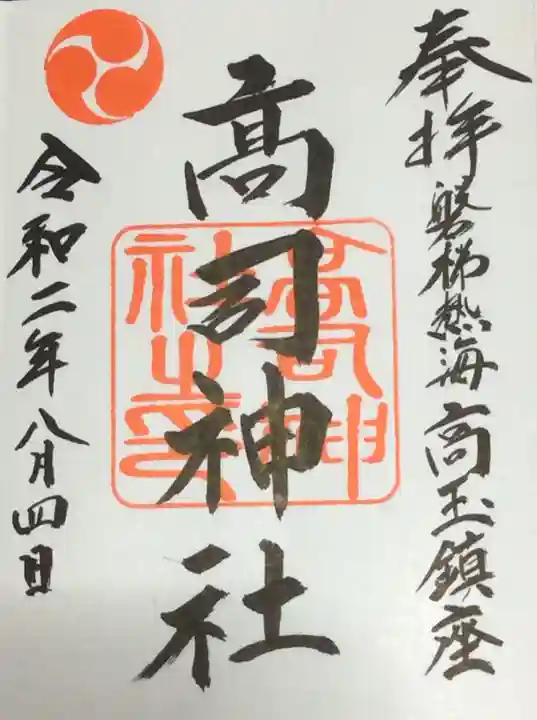 奉拝 磐梯熱海 高玉鎮座
高司神社
高司神社之印
令和二年八月四日